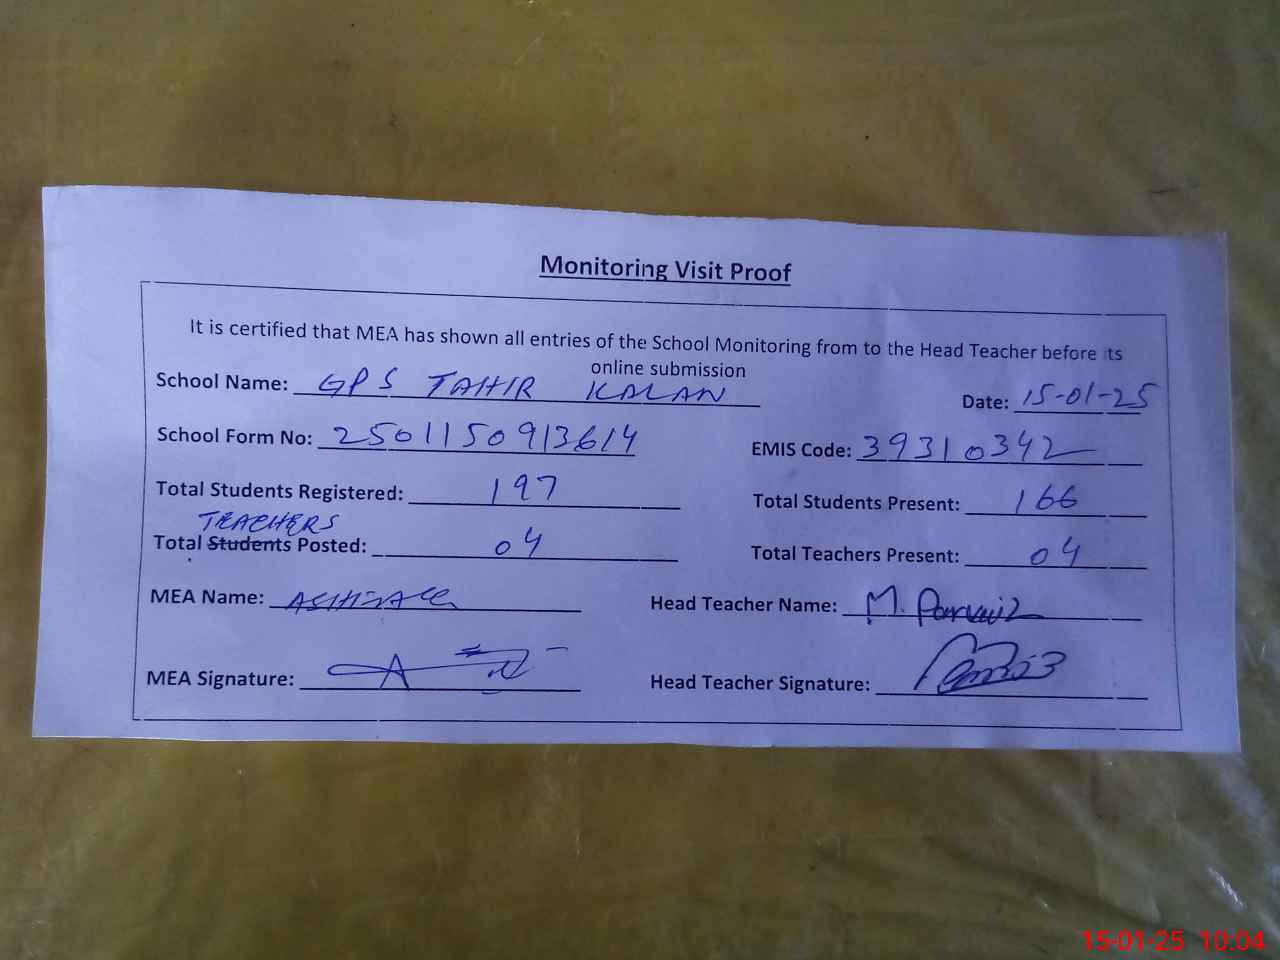 Monitoring Visit Proof
It is certified that MEA has shown all entries of the School Monitoring from to the Head Teacher before its
online submission
School Name: GPS TAHIR KALAN Date: 15-01-25
School Form No: 2501150913614 EMIS Code: 39310342
Total Students Registered: 197 Total Students Present: 166
TEACHERS
Total Students Posted: 04 Total Teachers Present: 04
MEA Name: Head Teacher Name: M. Parvaiz
MEA Signature: Head Teacher Signature:
15-01-25 10:04